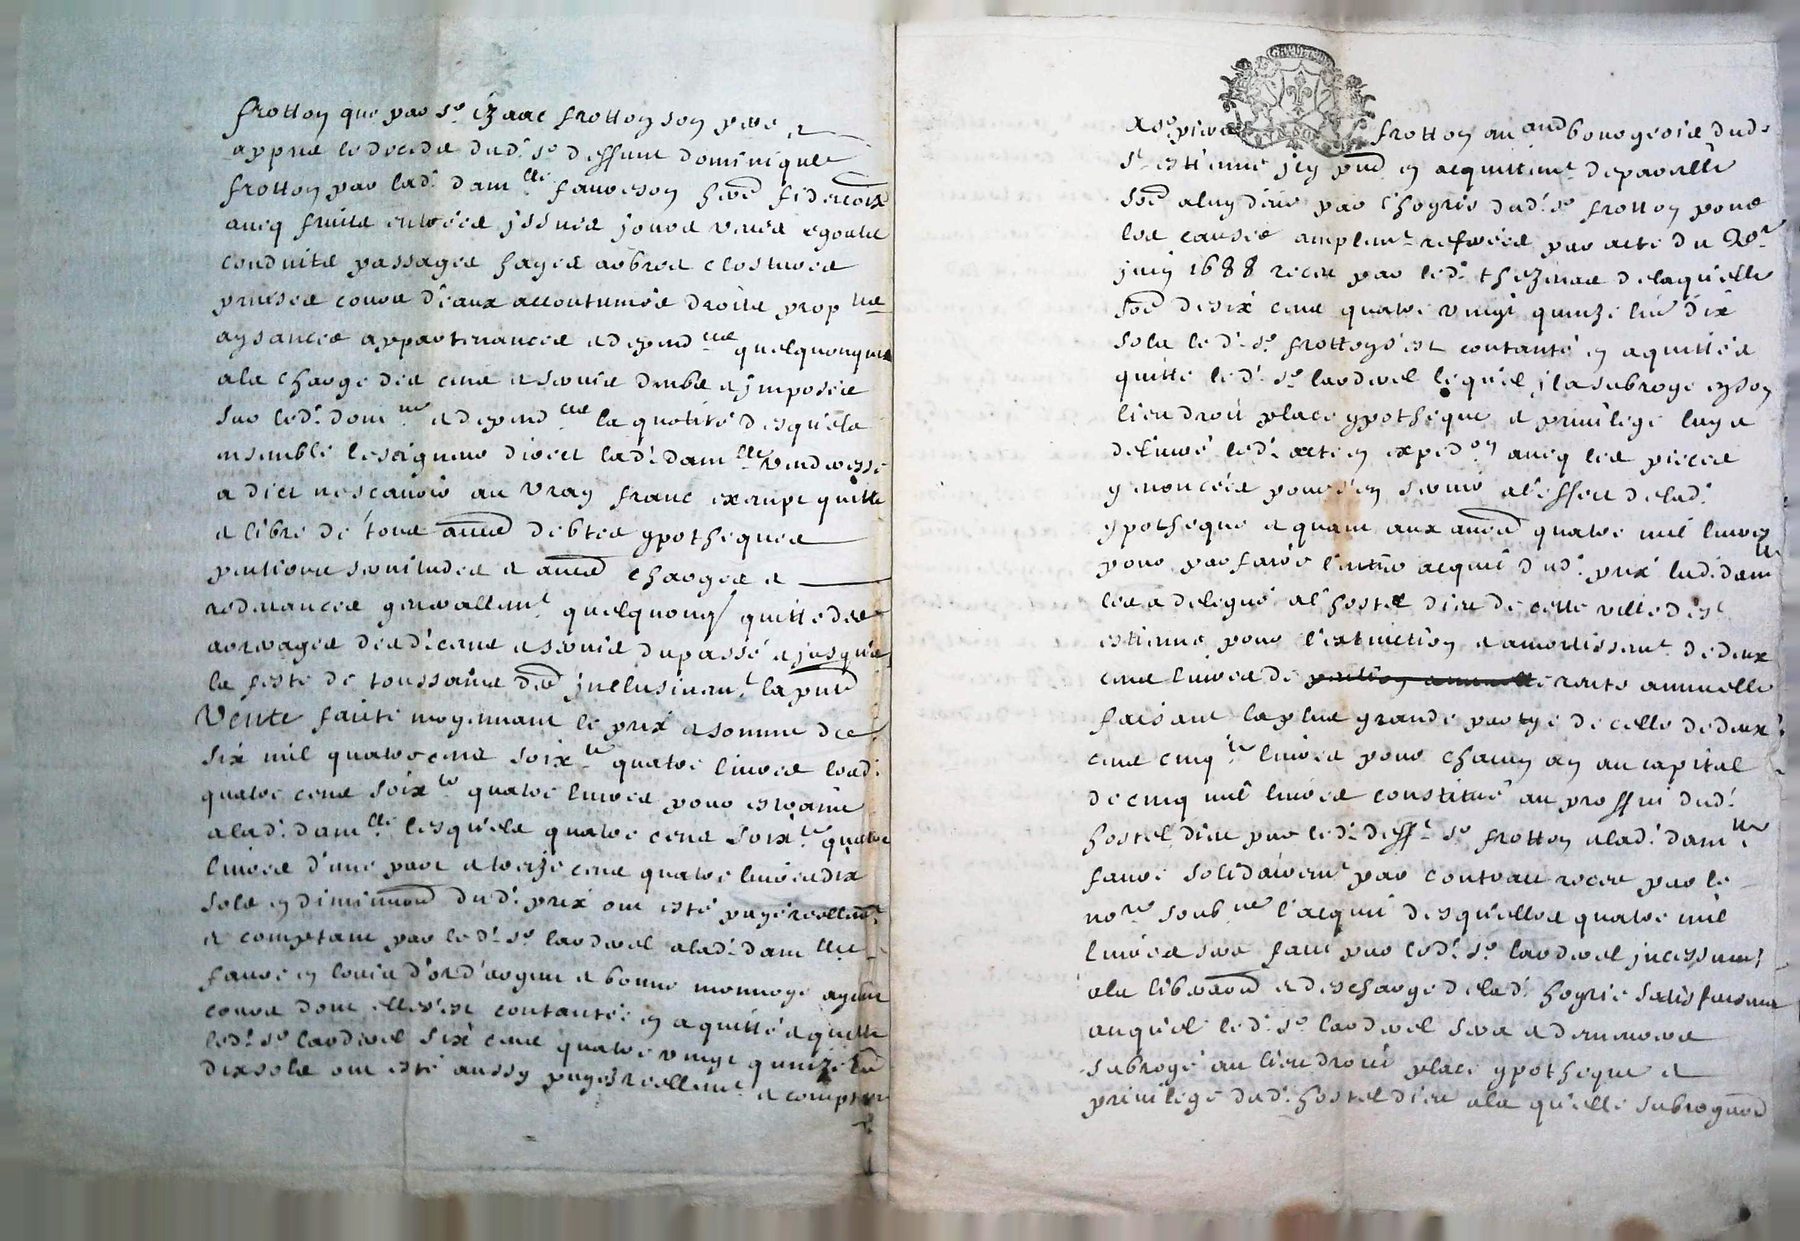 frotton que par sr izaac frotton son pere et
appres le deceds dud. sr deffunt dominique
frotton par lad. damlle faure son here fidercoix
avecq fruits entrées issues jours veues esgoutz
conduits passages hayes arbres clostures
prinses cours d'eaux accoutumés droits proptes
aysances appartenances et dependces quelquonques
a la charge des cens et servis deubz et imposés
sur led. domne et dependces la quotité desquels
ensemble le seigneur direct lad. damlle venderesse
a dict ne scavoir au vray franc exempt quitte
et libre de tous debtes ypotheques
pentions servitudes et charges et
redevances generallemt quelquonq quitte des
arreages desd. cens et servis du passé et jusques
la feste de toussaints inclusivemt la pnte
Vente faitte moyennant le prix et somme de
six mil quatre cens soixte quatre livres lesd.
quatre cens soixte quatre livres pour estraine
a lad. damlle lesquels quatre cens soixte quatre
livres d'une part et treize cens quatre livres dix
sols en diminuon dud. prix ont esté payé reellemt
et comptant par led. sr larderel a lad. damlle
faure en louis d'or d'argent et bonne monnoye ayant
cours dont elle s'est contantée en a quitté et quitte
led. sr larderel six cens quatre vingt quinze liv
dix sols ont esté aussy payés reellemt et comptant
A sr pierre frotton bourgeois dud.
St estienne icy pnt en acquittemt de pareille
som a luy deue par l'hoyrie dud. sr frotton pour
les causes amplemt referées par acte du
juin 1688 receu par led. thezenas de laquelle
som de six cens quatre vingt quinze liv dix
sols led. sr frotton s'est contanté en a quitté et
quitte led. sr larderel lequel il a subrogé en son
lieu droit place ypotheque et privilege luy a
delivré led. acte en expedon avecq les pieces
y enoncées pour s'en servir a l'effet de lad.
ypotheque et quant aux quatre mil livres
pour parfaire l'entier acquit dud. prix lad. damlle
les a delegué a l'hostel dieu de cette ville de st
estienne pour l'extinction et amortissemt de deux
cens livres de rente annuelle
faisant la plus grande partye de celle de deux
cens cinqte livres pour chacun an au capital
de cinq mil livres constitué au proffit dud.
hostel dieu par led. defft sr frotton et lad. damlle
faure solidairemt par contrau receu par le
nore soubne l'acquit desquelles quatre mil
livres sera fait par led. sr larderel incessamt
a la liberaon et descharge de lad. hoyrie satisfaisant
auquel led. sr larderel sera et demeurera
subrogé au lieu droit place ypotheque et
privilege dud. hostel dieu a laquelle subrogaon